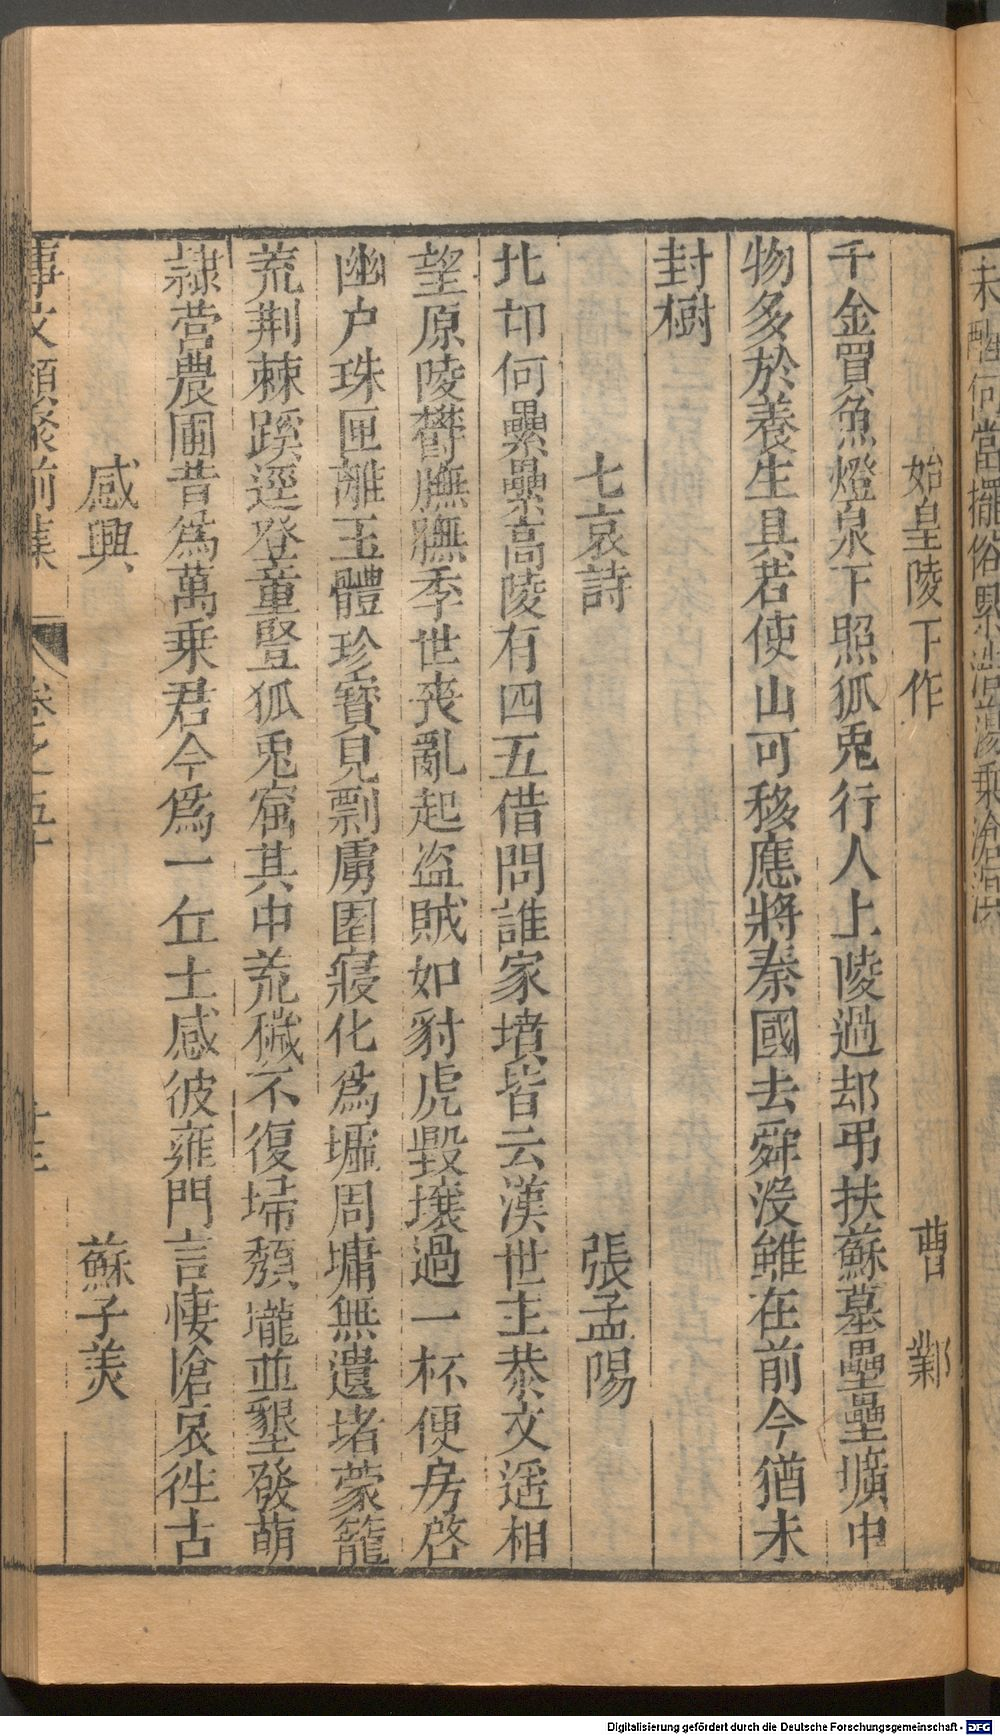 未醒何當擺俗累浩蕩乘滄浪
始皇陵下作　曹鄴
千金買魚燈泉下照狐兎行人上陵過却弔扶蘇墓壘壘壙中
物多於養生具若使山可移應將秦國去舜没雖在前今猶未
封樹
七哀詩　張孟陽
北邙何壘壘高陵有四五借問誰家墳皆云漢世主恭文遥相
望原陵鬱膴膴季世喪亂起盗賊如豺虎毀壤過一杯便房啓
幽户珠匣離玉體珍寶見剽虜園寢化爲墟周墉無遺堵蒙籠
荒荆棘蹊逕登童豎狐兎窟其中荒穢不復埽頽壠並墾發萌
隷營農圃昔爲萬乗君今爲一丘土感彼雍門言悽愴哀徃古
感興　蘇子美
事文類聚前集　卷之五十　十三
Digitalisierung gefördert durch die Deutsche Forschungsgemeinschaft - DFG